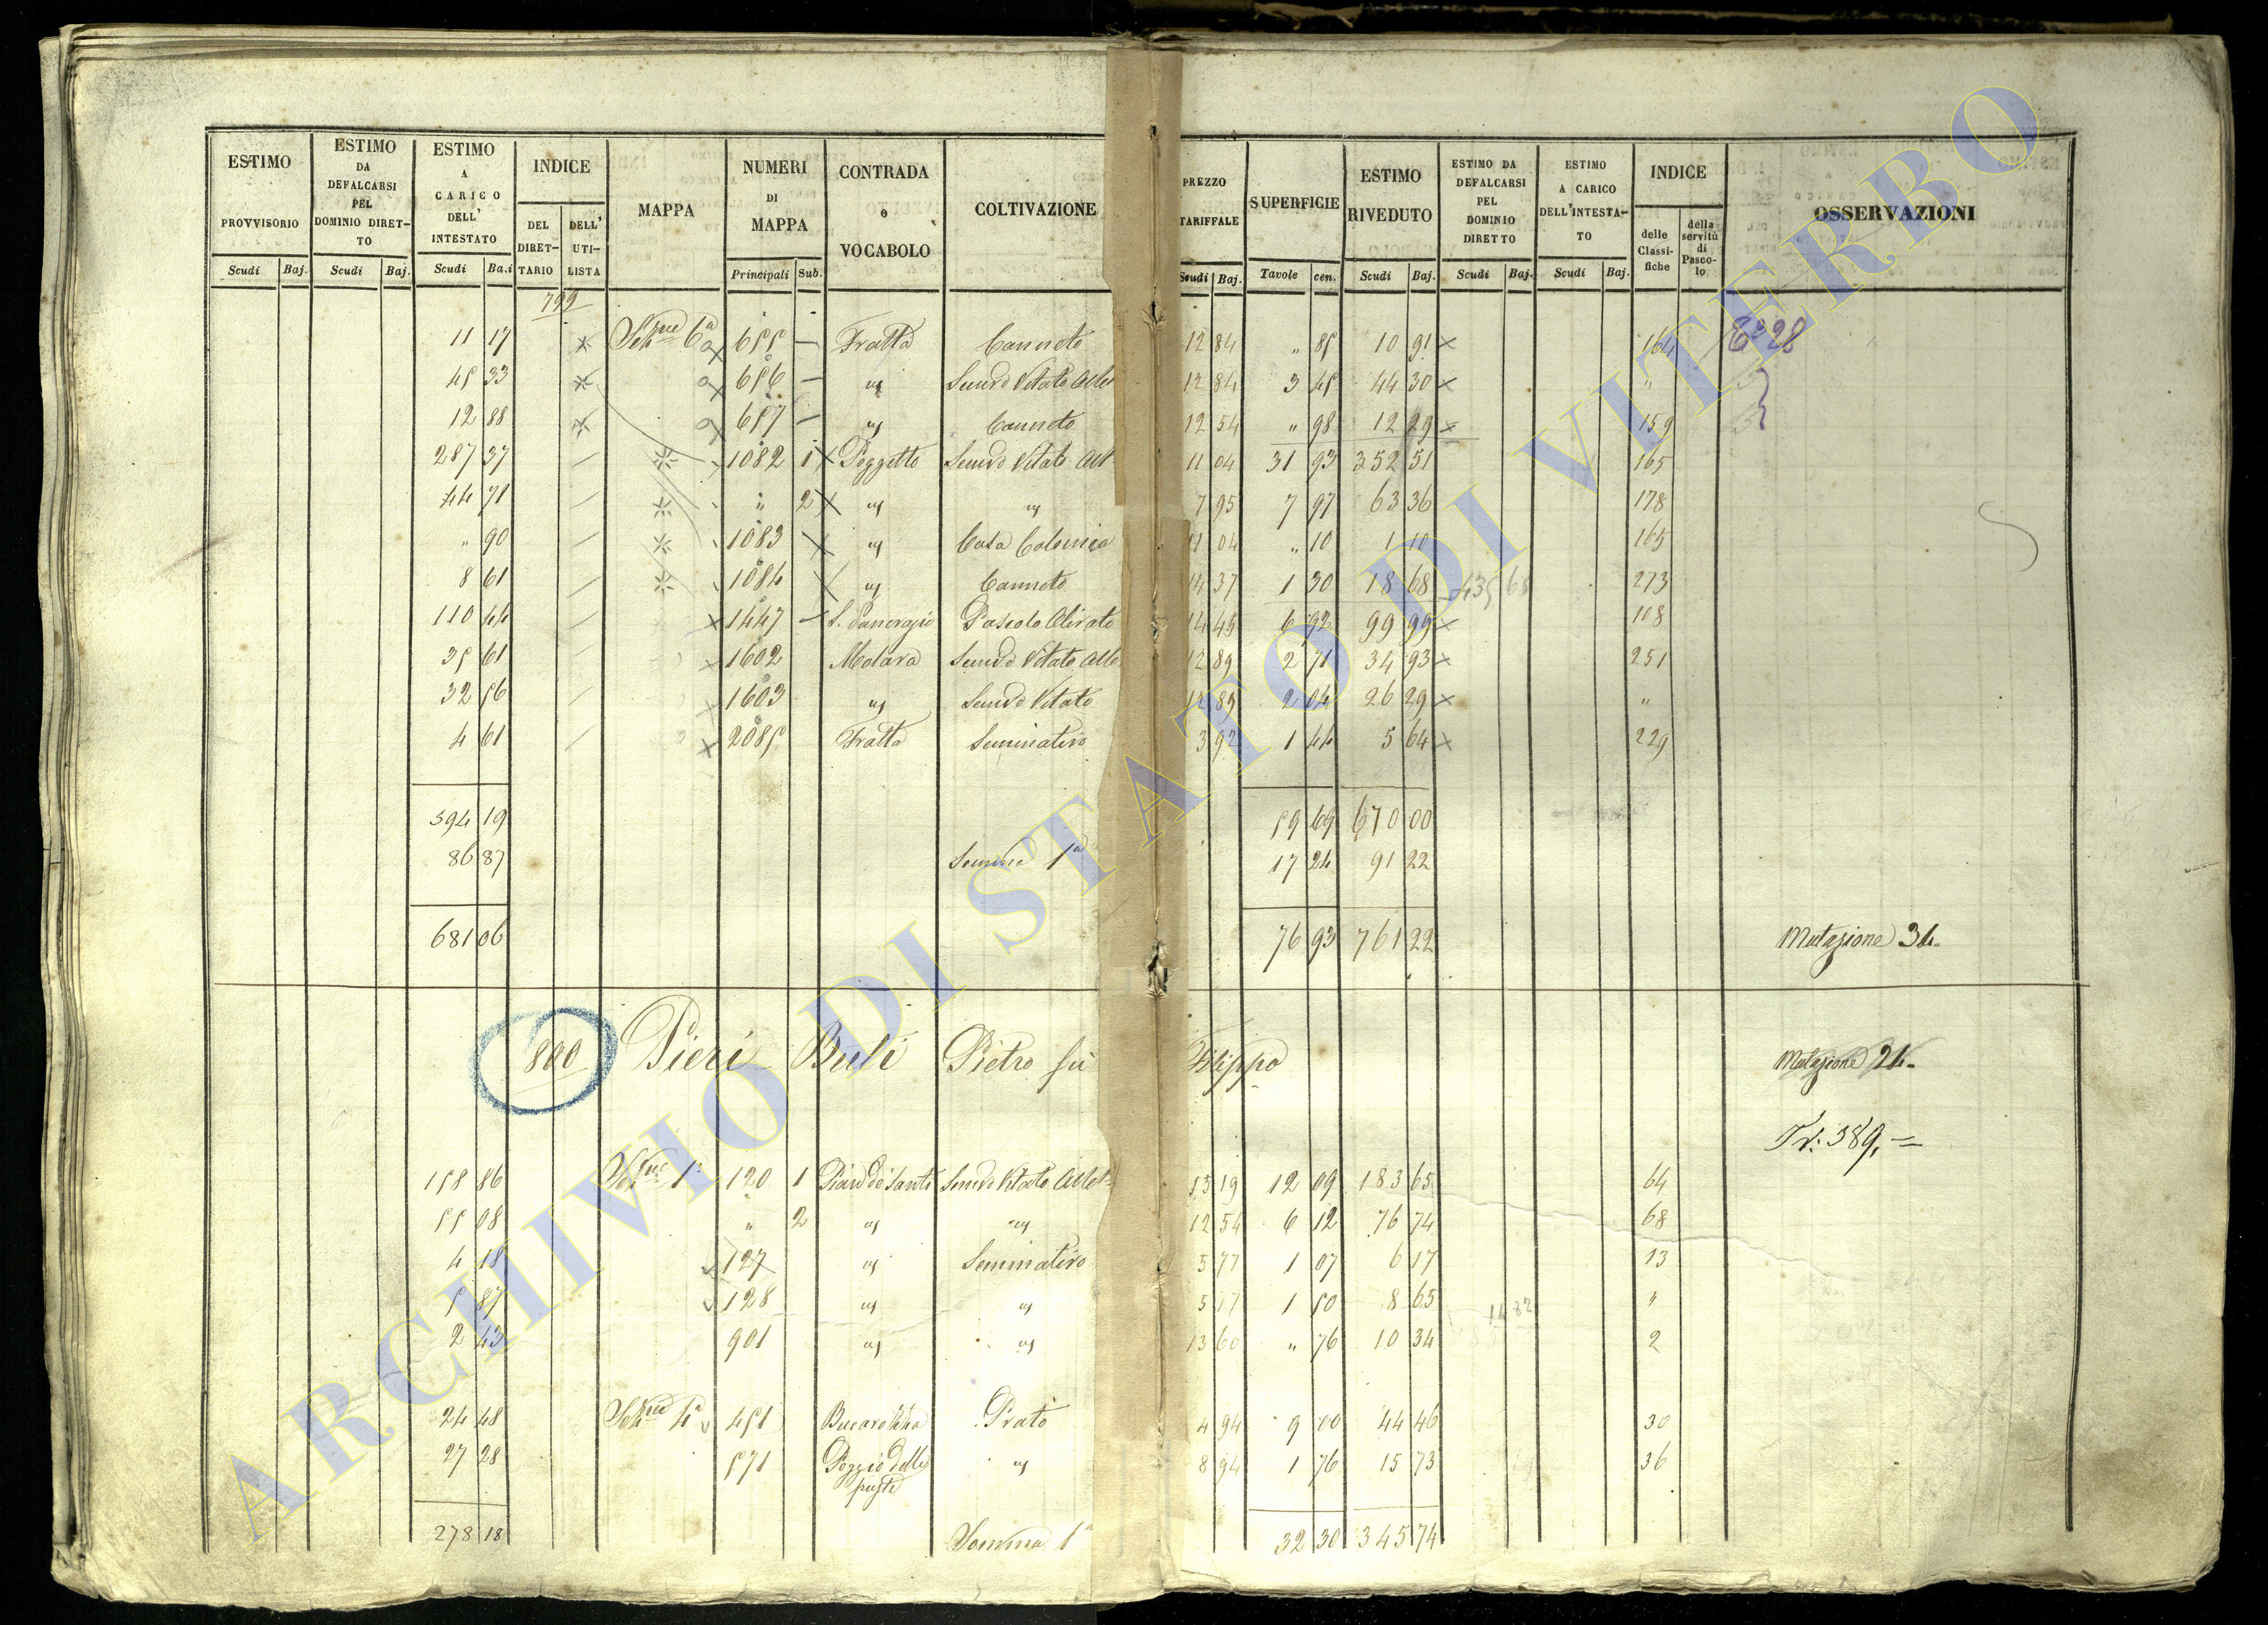 ESTIMO PROVVISORIO
Scudi Baj.
ESTIMO DA DEFALCARSI PEL DOMINIO DIRET-TO
Scudi Baj.
ESTIMO A CARICO DELL' INTESTATO
Scudi Ba.i
INDICE
DEL DIRET-TARIO
DELL' UTI-LISTA
MAPPA
NUMERI DI MAPPA
Principali Sub.
CONTRADA o VOCABOLO
COLTIVAZIONE
PREZZO TARIFFALE
Scudi Baj.
SUPERFICIE
Tavole cen.
ESTIMO RIVEDUTO
Scudi Baj.
ESTIMO DA DEFALCARSI PEL DOMINIO DIRETTO
Scudi Baj.
ESTIMO A CARICO DELL'INTESTA-TO
Scudi Baj.
INDICE
delle Classi-fiche
della servitù di Pasco-lo
OSSERVAZIONI
799
11 17 Sez.ne 6a 655 — Fratta Canneto 12 84 " 85 10 91 164 28
45 33 656 — " Semvo Vitato Albto 12 84 3 45 44 30 "
12 88 657 — " Canneto 12 54 " 98 12 29 159
287 37 1082 1 Poggetto Semvo Vitato Alb 11 04 31 93 352 51 165
44 71 " 2 " " 7 95 7 97 63 36 178
" 90 1083 " Casa Colonica 11 04 " 10 1 10 165
8 61 1084 " Canneto 14 37 1 30 18 68 435 65 273
110 44 1447 — S. Pancrazio Pascolo Olivato 14 45 6 92 99 99 108
35 61 1602 Molara Semvo Vitato Alb 12 89 2 71 34 93 251
32 56 1603 " Semvo Vitato 12 89 2 04 26 29 "
4 61 2085 Fratta Seminativo 3 92 1 44 5 64 229
594 19 59 69 670 00
86 87 Somma 1a 17 24 91 22
681 06 76 93 761 22 Mutazione 34.
800 Pieri Buti Pietro fu Filippo Mutazione 24.
Tr: 389,=
158 86 Sez.ne 1a 120 1 Pian de Santi Semvo Vitato Albto 15 19 12 09 183 65 64
55 08 " 2 " " 12 54 6 12 76 74 68
4 18 127 " Seminativo 5 77 1 07 6 17 13
5 87 128 " " 5 77 1 50 8 65 14 82 "
2 43 901 " " 13 60 " 76 10 34 2
24 48 Sez.ne 4a 451 Prato 4 94 9 00 44 46 30
27 28 571 Poggio delle " 8 94 1 76 15 73 36
278 18 Somma 1a 32 30 345 74
ARCHIVIO DI STATO DI VITERBO